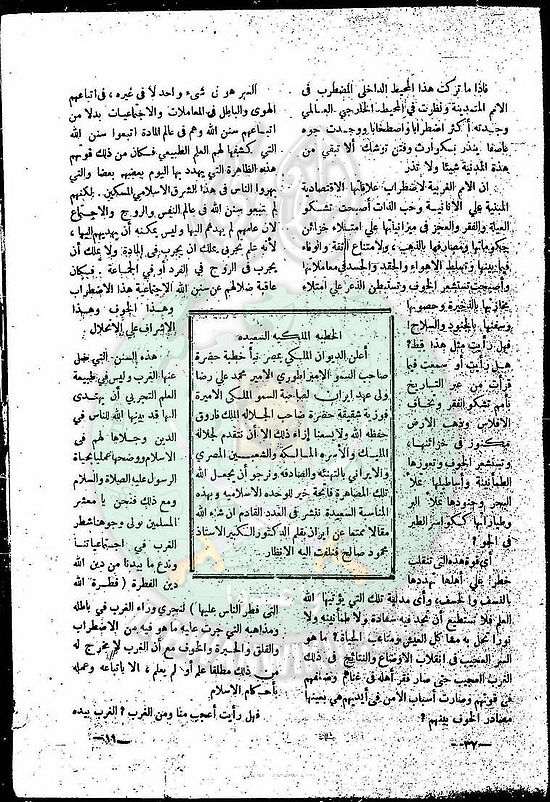 فاذا ما تركت هذا المحيط الداخلى المضطرب فى
الامم المتمدينة ونظرت فى المحيط الخارجى العالمى
وجدته أكثر اضطرابا واصطخابا ووجدت جوه
عاصفا ينذر بكوارث وفتن توشك ألا تبقى من
هذه المدنية شيئا ولا تذر
ان الامم الغربية لاضطراب علاقاتها الاقتصادية
المبنية على الانانية وحب الذات أصبحت تشكو
العيلة والفقر والعجز فى ميزانيتها على امتلاء خزائن
حكوماتها ومصارفها بالذهب، ولامتناع الثقة والوفاء
فيما بينها وتسلط الاهواء والحقد والحسد فى معاملاتها
وأصبحت تستشعر الخوف وتستبطن الذعر على امتلاء
مخازنها بالذخيرة وحصونها
وسفنها بالجنود والسلاح!
فهل رأيت مثل هذا قط؟
هل رأيت أو سمعت فيما
قرأت من عبر التاريخ
بأمم تشكو الفقر وتخاف
الافلاس وذهب الارض
مكنوز فى خزائنها،
وتستشعر الخوف وتعوزها
الطمأنينة وأساطيلها تملأ
البحر وجنودها تملأ البر
وطياراتها ككواسر الطير
فى الجو؟
أى قوة هذه التى تنقلب
خطرا على أهلها تهددها
بالنسف والخسف، وأى مدنية تلك التى يؤتيها الله
العلم فلا تستطيع أن تجد فيه سعادة ولا طمأنينة ولا
نورا تحل به مشاكل العيش ومتاعب الحياة؟ ما هو
السر العجيب فى انقلاب الاوضاع والنتائج فى ذلك
الغرب العجيب حتى صار فقر أهله فى غناهم وضعفهم
فى قوتهم وصارت أسباب الأمن فى أيديهم هى بعينها
مصادر الخوف بينهم؟
السر هو فى شىء واحد لا فى غيره، فى اتباعهم
الهوى والباطل فى المعاملات والاجتماعيات بدلا من
اتباعهم سنن الله وهم فى عالم المادة اتبعوا سنن الله
التى كشفها لهم العلم الطبيعى فكان من ذلك قوتهم
هذه الظاهرة التى يهدد بها اليوم بعضهم بعضا والتى
بهروا الناس فى هذا الشرق الاسلامى المسكين. لكنهم
لم يتبعوا سنن الله فى عالم النفس والروح والاجتماع
لان علمهم لم يهدهم اليها وليس يمكنه أن يهديهم اليها،
لأنه علم تجربى يملك ان يجرب فى المادة ولا يملك أن
يجرب فى الروح فى الفرد أو فى الجماعة. فكان
عاقبة ضلالهم عن سنن الله الاجتماعية هذا الاضطراب
وهذا الخوف وهذا
الاشراف على الانحلال
هذه السنن التى ضل
عنها الغرب وليس فى طبيعة
العلم التجربى أن يهتدى
اليها قد بينها الله للناس فى
الدين وجلاها لهم فى
الاسلام ووضحها عمليا بحياة
الرسول عليه الصلاة والسلام
ومع ذلك فنحن يا معشر
المسلمين نولى وجوهنا شطر
الغرب فى اجتماعياتنا
وندع ما بيدنا من دين الله
دين الفطرة ( فطرة الله
التى فطر الناس عليها ) لنجرى وراء الغرب فى باطله
ومذاهبه التى جرت عليه ما هو فيه من الاضطراب
والقلق والحيرة والخوف مع أن الغرب لا مخرج له
من ذلك مطلقا علم أو لم يعلم، الا باتباعه وعمله
بأحكام الاسلام
فهل رأيت أعجب منا ومن الغرب؟ الغرب بيده
الخطبة الملكية السعيدة
أعلن الديوان الملكى بمصر نبأ خطبة حضرة
صاحب السمو الامبراطورى الامير محمد على رضا
ولى عهد ايران لصاحبة السمو الملكى الاميرة
فوزية شقيقة حضرة صاحب الجلالة الملك فاروق
حفظه الله ولا يسعنا إزاء ذلك الا أن نتقدم لجلالة
المليك والاسرة المالكة والشعبين المصرى
والايرانى بالتهنئة الصادقة ونرجو أن يجعل الله
تلك المصاهرة فاتحة خير للوحدة الاسلامية وبهذه
المناسبة السعيدة ننشر فى العدد القادم ان شاء الله
مقالا ممتعا عن ايران بقلم الدكتور الكبير الاستاذ
محمود صالح فنلفت اليه الانظار